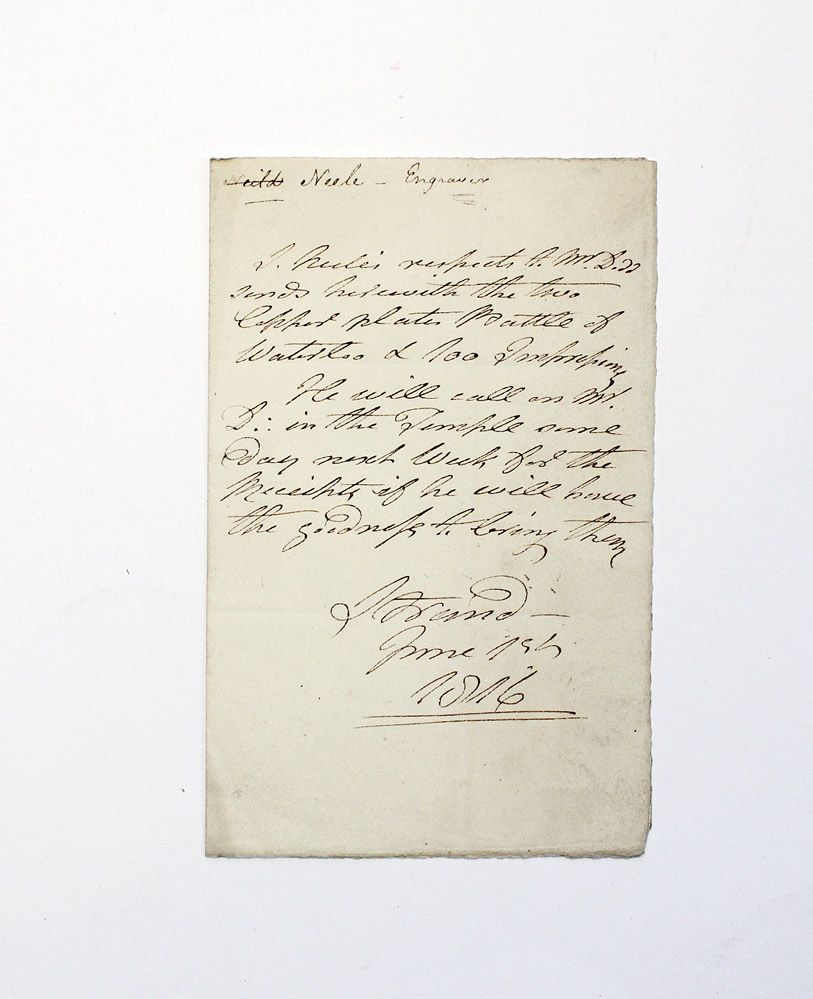 Neild Neele - Engraver
S. Neele's respects to Mr. D. &
sends herewith the two
Copper plates Battle of
Waterloo & 100 Impressions
He will call on Mr.
D:. in the Temple some
Day next Week for the
Receipts if he will have
the goodness to bring them
Strand -
June 1st
1816